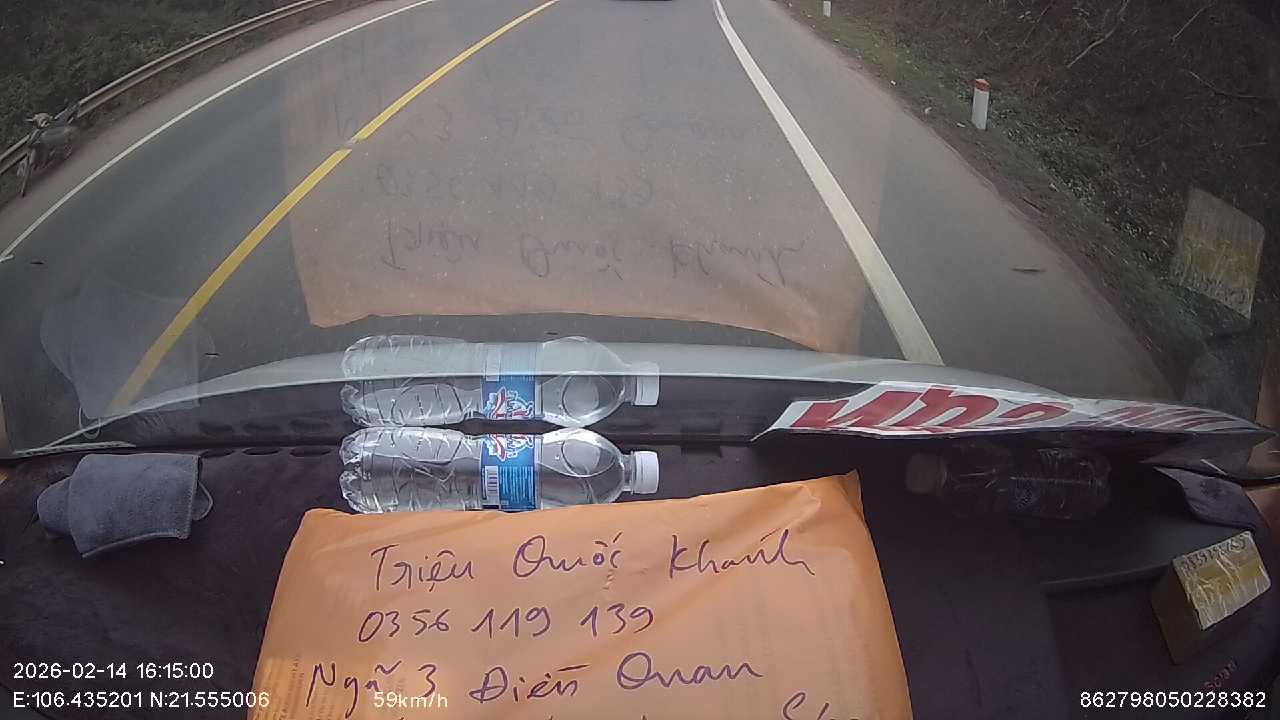 Triệu Quốc Khanh
0356 119 139
Ngã 3 Điền Quan
2026-02-14 16:15:00
E:106.435201 N:21.555006
59km/h
862798050228382